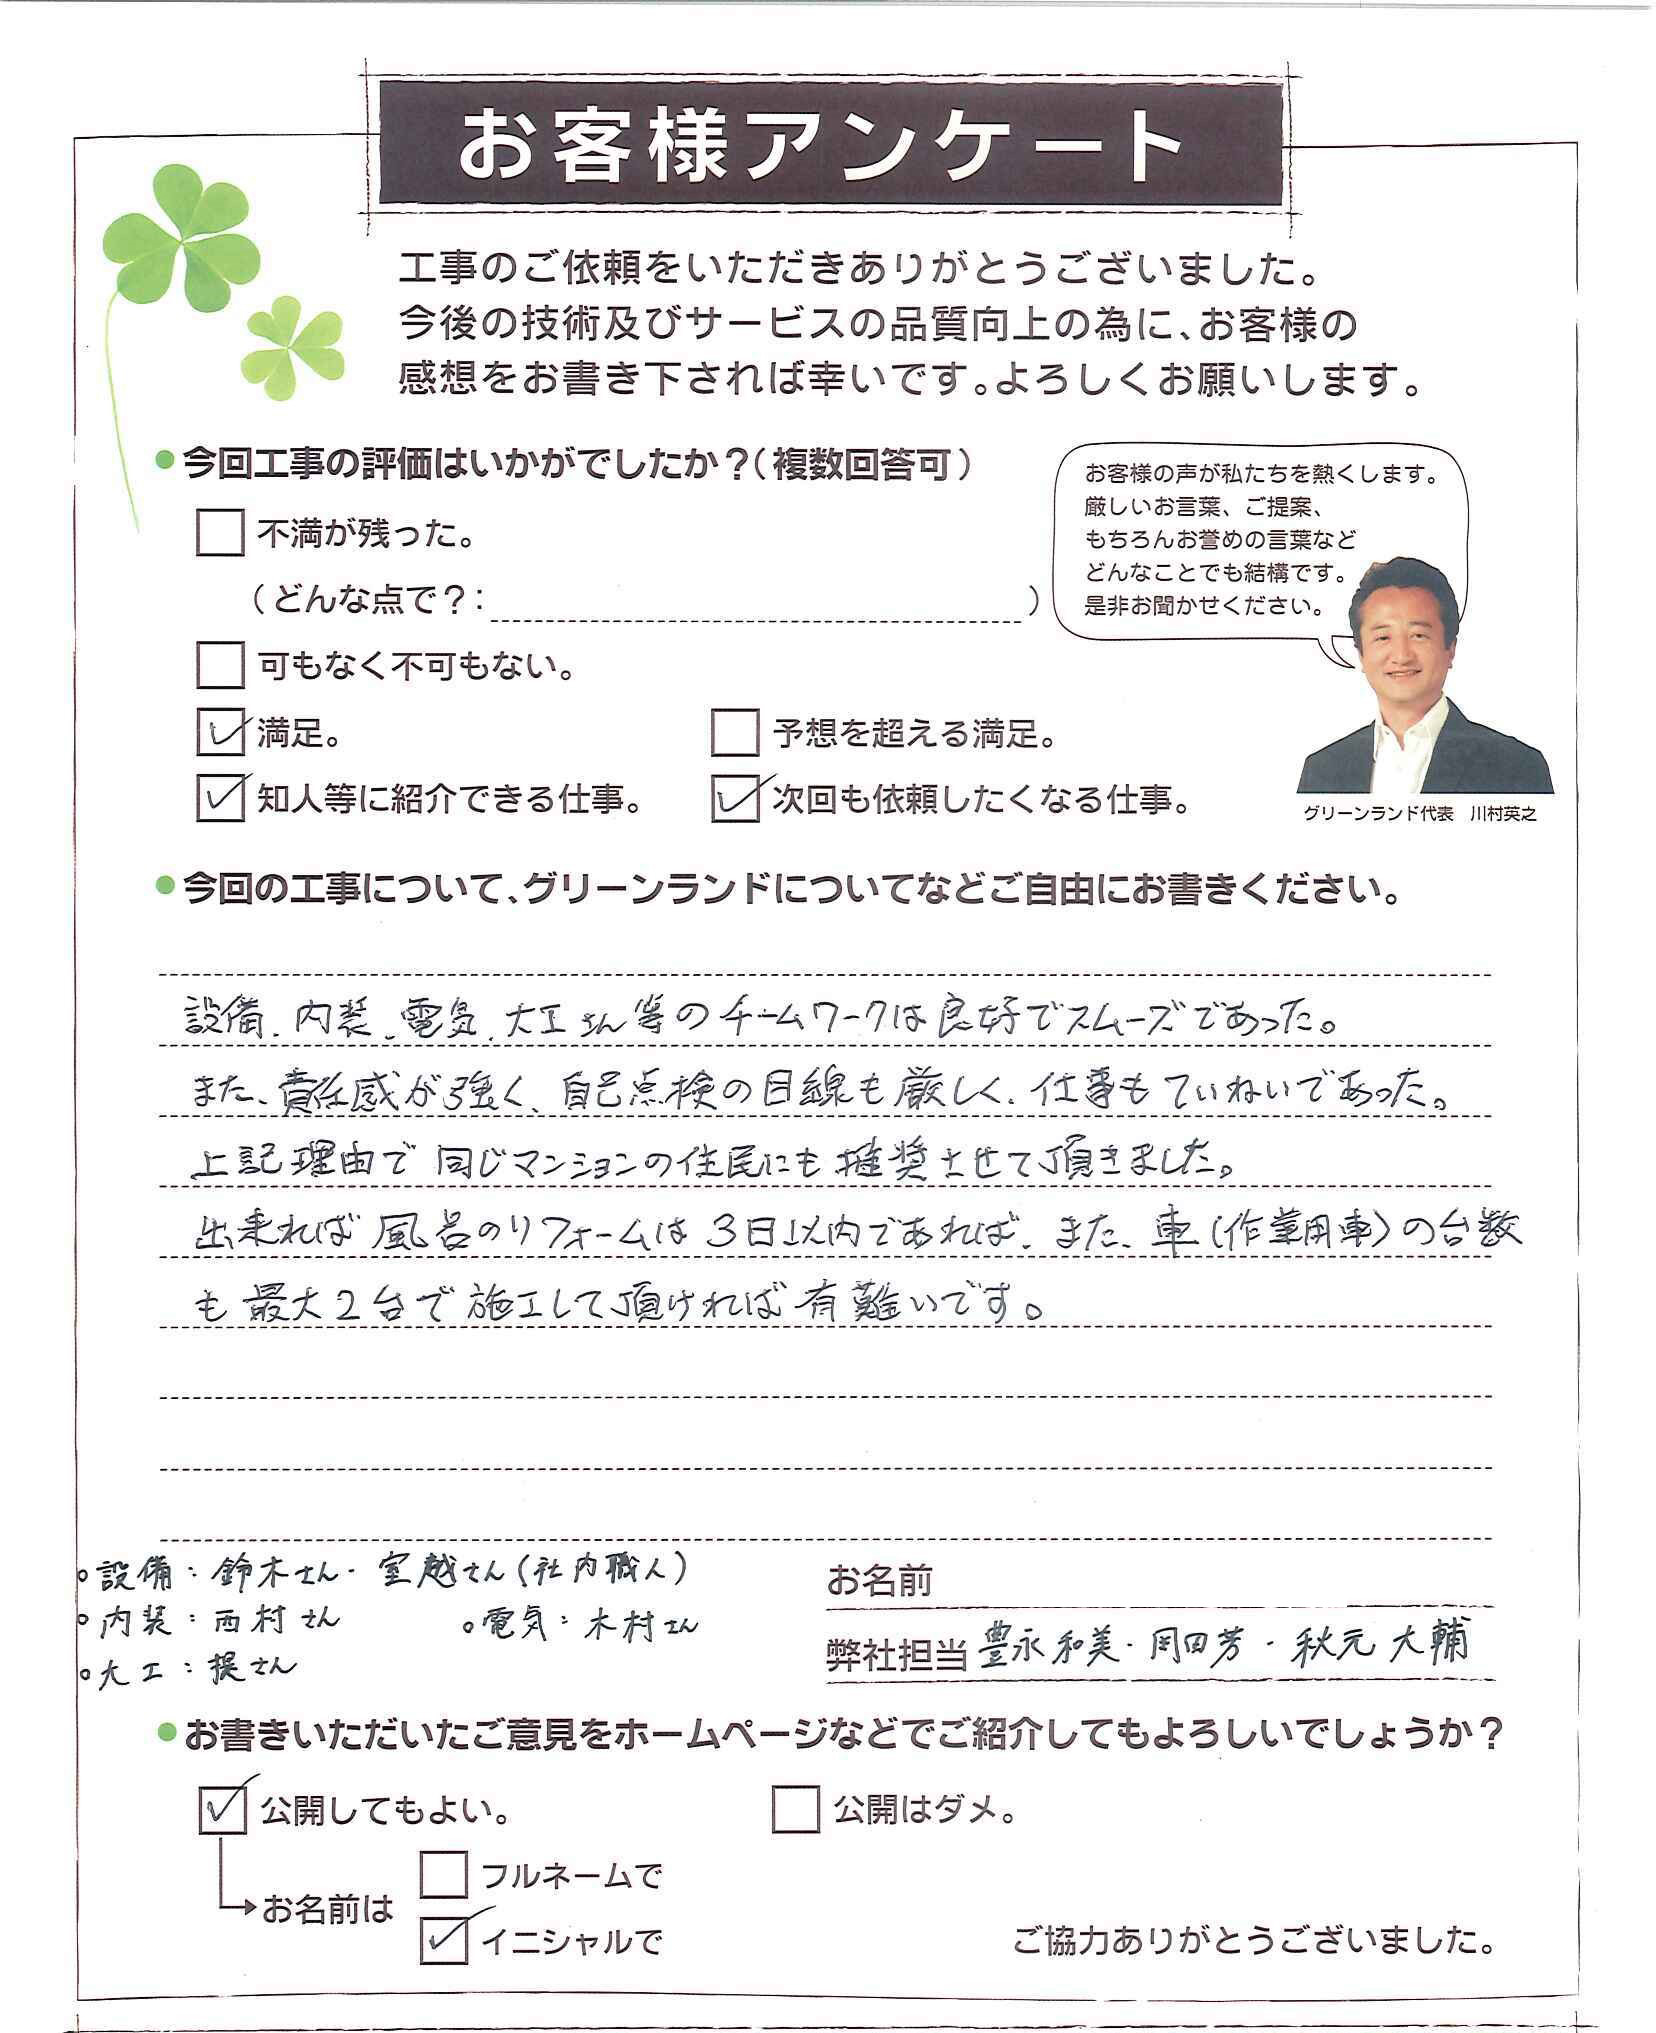 お客様アンケート
工事のご依頼をいただきありがとうございました。
今後の技術及びサービスの品質向上の為に、お客様の
感想をお書き下されば幸いです。よろしくお願いします。
●今回工事の評価はいかがでしたか?(複数回答可)
お客様の声が私たちを熱くします。
厳しいお言葉、ご提案、
もちろんお誉めの言葉など
どんなことでも結構です。
是非お聞かせください。
不満が残った。
(どんな点で?: )
可もなく不可もない。
満足。 予想を超える満足。
知人等に紹介できる仕事。 次回も依頼したくなる仕事。
グリーンランド代表 川村英之
●今回の工事について、グリーンランドについてなどご自由にお書きください。
設備、内装、電気、大工さん等のチームワークは良好でスムーズであった。
また、責任感が強く、自己点検の目線も厳しく、仕事もていねいであった。
上記理由で同じマンションの住民にも推奨させて頂きました。
出来れば風呂のリフォームは3日以内であれば、また、車(作業用車)の台数
も最大2台で施工して頂ければ有難いです。
○設備:鈴木さん・室越さん(社内職人)
○内装:西村さん ○電気:木村さん
○大工:堤さん
お名前
弊社担当 豊永和美・岡田芳・秋元大輔
●お書きいただいたご意見をホームページなどでご紹介してもよろしいでしょうか?
公開してもよい。 公開はダメ。
お名前は
フルネームで
イニシャルで
ご協力ありがとうございました。